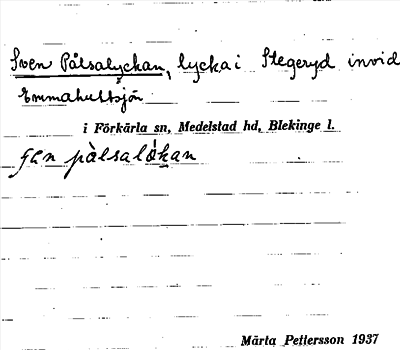 Sven Pålsalyckan, lycka i Stegeryd invid
Emmahultsjön
i Förkärla sn, Medelstad hd, Blekinge l.
pàlsalökan
Märta Pettersson 1937